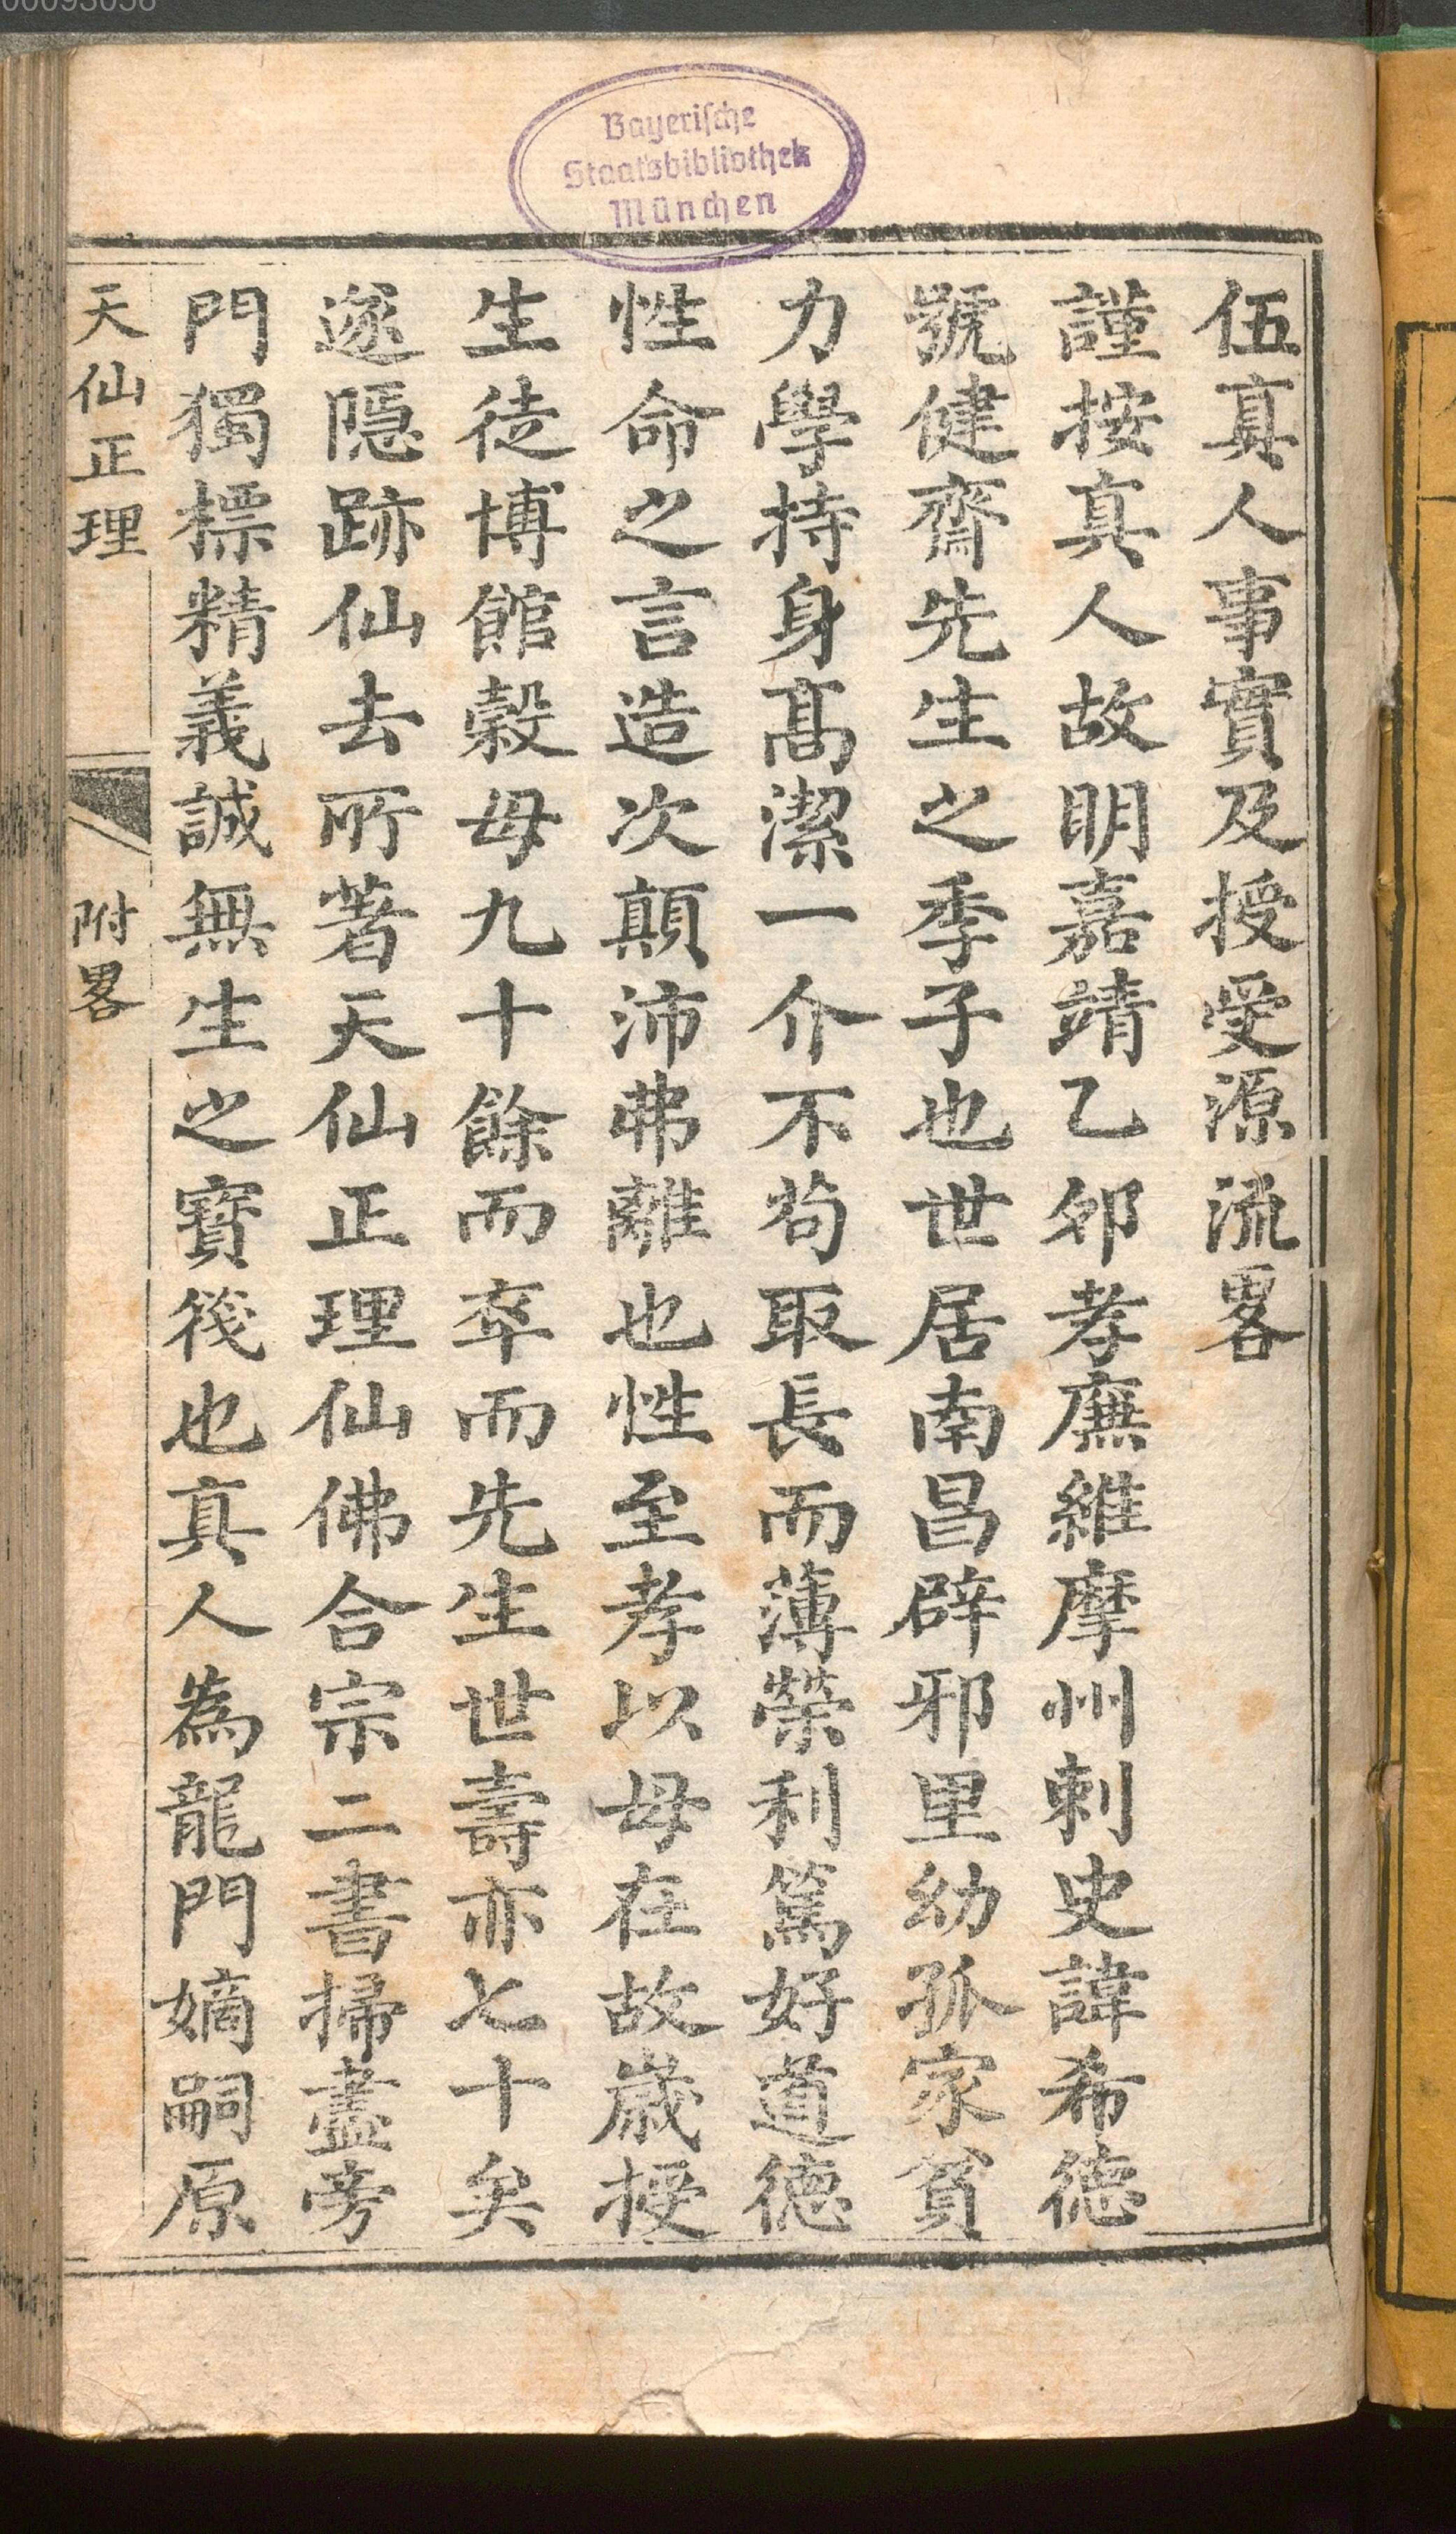 00093058
Bayerische
Staatsbibliothek
München
伍真人事實及授受源流畧
謹按真人故明嘉靖乙夘孝廉維摩州刺史諱希德
號健齋先生之季子也世居南昌辟邪里幼孤家貧
力學持身髙潔一介不茍取長而薄榮利篤好道德
性命之言造次顛沛弗離也性至孝以母在故歲授
生徒博館穀母九十餘而卒而先生世壽亦七十矣
遂隱跡仙去所著天仙正理仙佛合宗二書掃盡旁
門獨標精義誠無生之寶筏也真人為龍門嫡嗣原
天仙正理
附畧